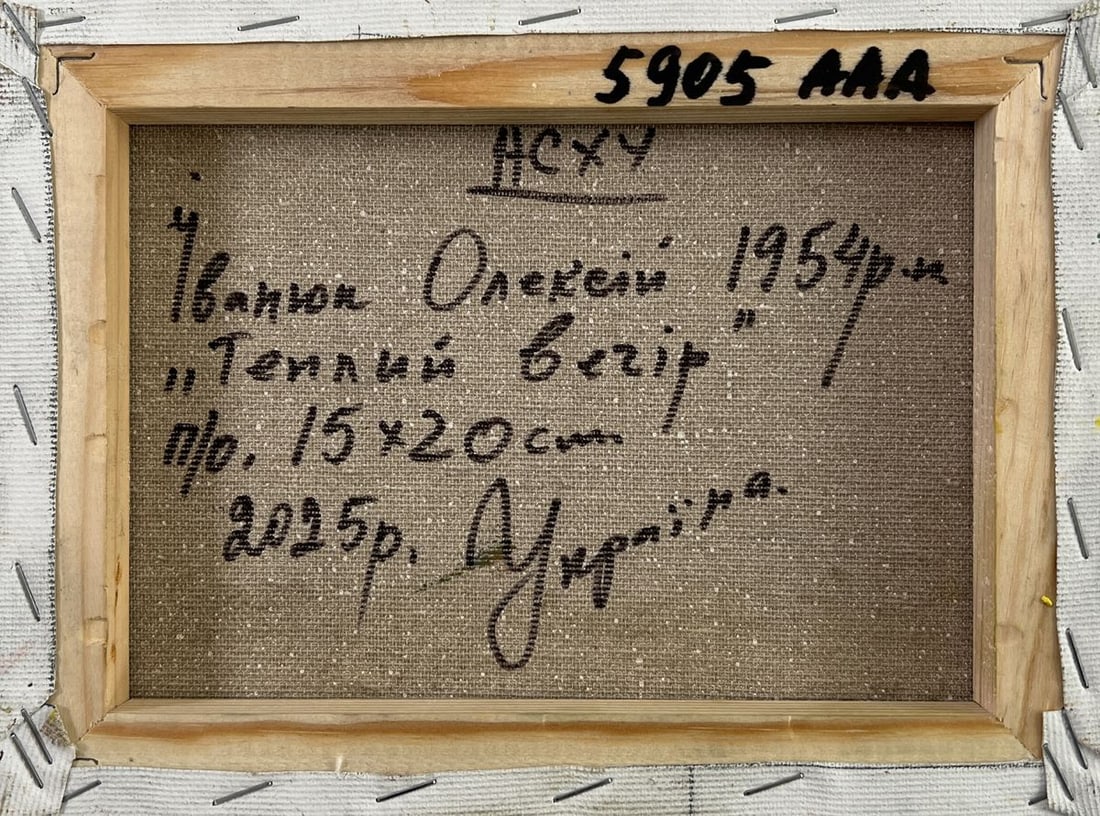 5905 AAA
НСХУ
Іванюк Олексій 1954р.н
„Теплий вечір”
п/о. 15×20см
2025р. Україна.